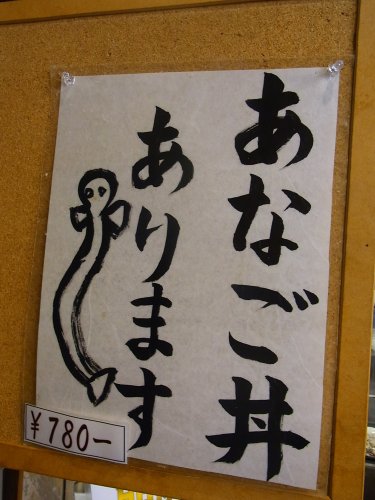 あなご丼
あります
¥780-